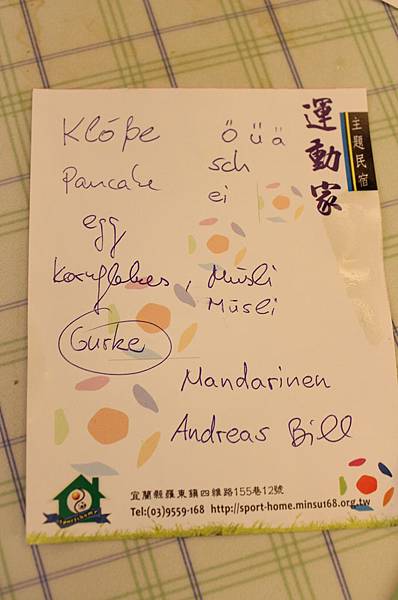 運動家
主題民宿
Klöße ö ü ä
sch
Pancake ei
egg
Kornflakes, Müsli
Müsli
Gurke
Mandarinen
Andreas Bill
宜蘭縣羅東鎮四維路155巷12號
Tel:(03)9559-168 http://sport-home.minsu168.org.tw